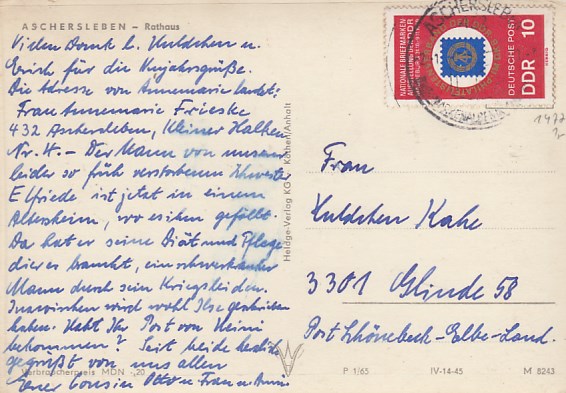 ASCHERSLEBEN – Rathaus
Vielen Dank l. Huldchen u.
Erich, für die Neujahrsgrüße.
Die Adresse von Annemarie lautet:
Frau Annemarie Frieske
432 Aschersleben, Kleiner Halken
Nr. 4. – Der Mann von unserer
leider so früh verstorbenen Schwester
Elfriede ist jetzt in einem
Altersheim, wo es ihm gefällt.
Da hat er seine Diät und Pflege
die er braucht, ein schwerkranker
Mann durch sein Kriegsleiden.
Inzwischen wird wohl Ilse geschrieben
haben. Habt Ihr Post von Heini
bekommen? Seid beide herzlich
gegrüßt von uns allen
Euer Cousin Otto u. Frau u. Anni.
Verbraucherpreis MDN -,20
Heldge-Verlag KG Köthen/Anhalt
P 1/65 IV-14-45 M 8243
ASCHERSLEB
NATIONALE BRIEFMARKEN
AUSSTELLUNG DER DDR
DEUTSCHE POST
DDR 10
1477
Frau
Huldchen Kahe
3301 Glinde 58
Post Schönebeck-Elbe-Land.